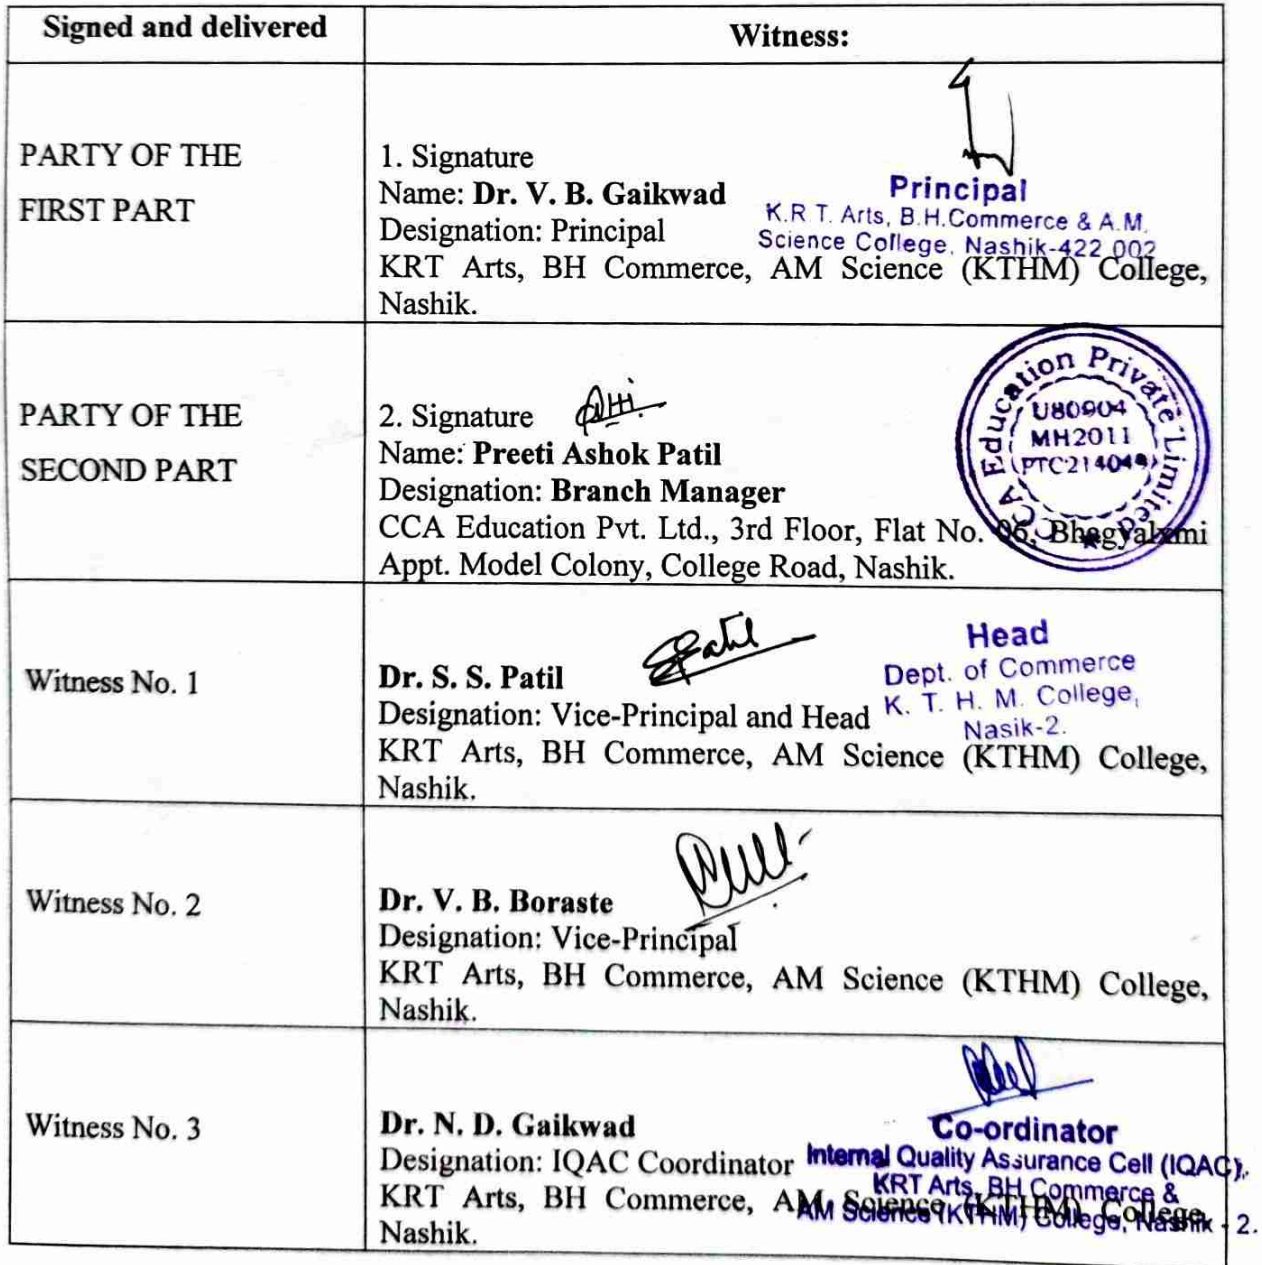 Signed and delivered
Witness:
PARTY OF THE
FIRST PART
1. Signature
Name: Dr. V. B. Gaikwad
Designation: Principal
KRT Arts, BH Commerce, AM Science (KTHM) College,
Nashik.
Principal
K.R T. Arts, B.H.Commerce & A.M.
Science College, Nashik-422 002
PARTY OF THE
SECOND PART
2. Signature
Name: Preeti Ashok Patil
Designation: Branch Manager
CCA Education Pvt. Ltd., 3rd Floor, Flat No. 06, Bhagyalaxmi
Appt. Model Colony, College Road, Nashik.
CCA Education Private Limited
U80904
MH2011
PTC214049
Witness No. 1
Dr. S. S. Patil
Designation: Vice-Principal and Head
KRT Arts, BH Commerce, AM Science (KTHM) College,
Nashik.
Head
Dept. of Commerce
K. T. H. M. College,
Nasik-2.
Witness No. 2
Dr. V. B. Boraste
Designation: Vice-Principal
KRT Arts, BH Commerce, AM Science (KTHM) College,
Nashik.
Witness No. 3
Dr. N. D. Gaikwad
Designation: IQAC Coordinator
KRT Arts, BH Commerce, AM Science (KTHM) College,
Nashik.
Co-ordinator
Internal Quality Assurance Cell (IQAC),
KRT Arts, BH Commerce &
AM Science (KTHM) College, Nashik - 2.